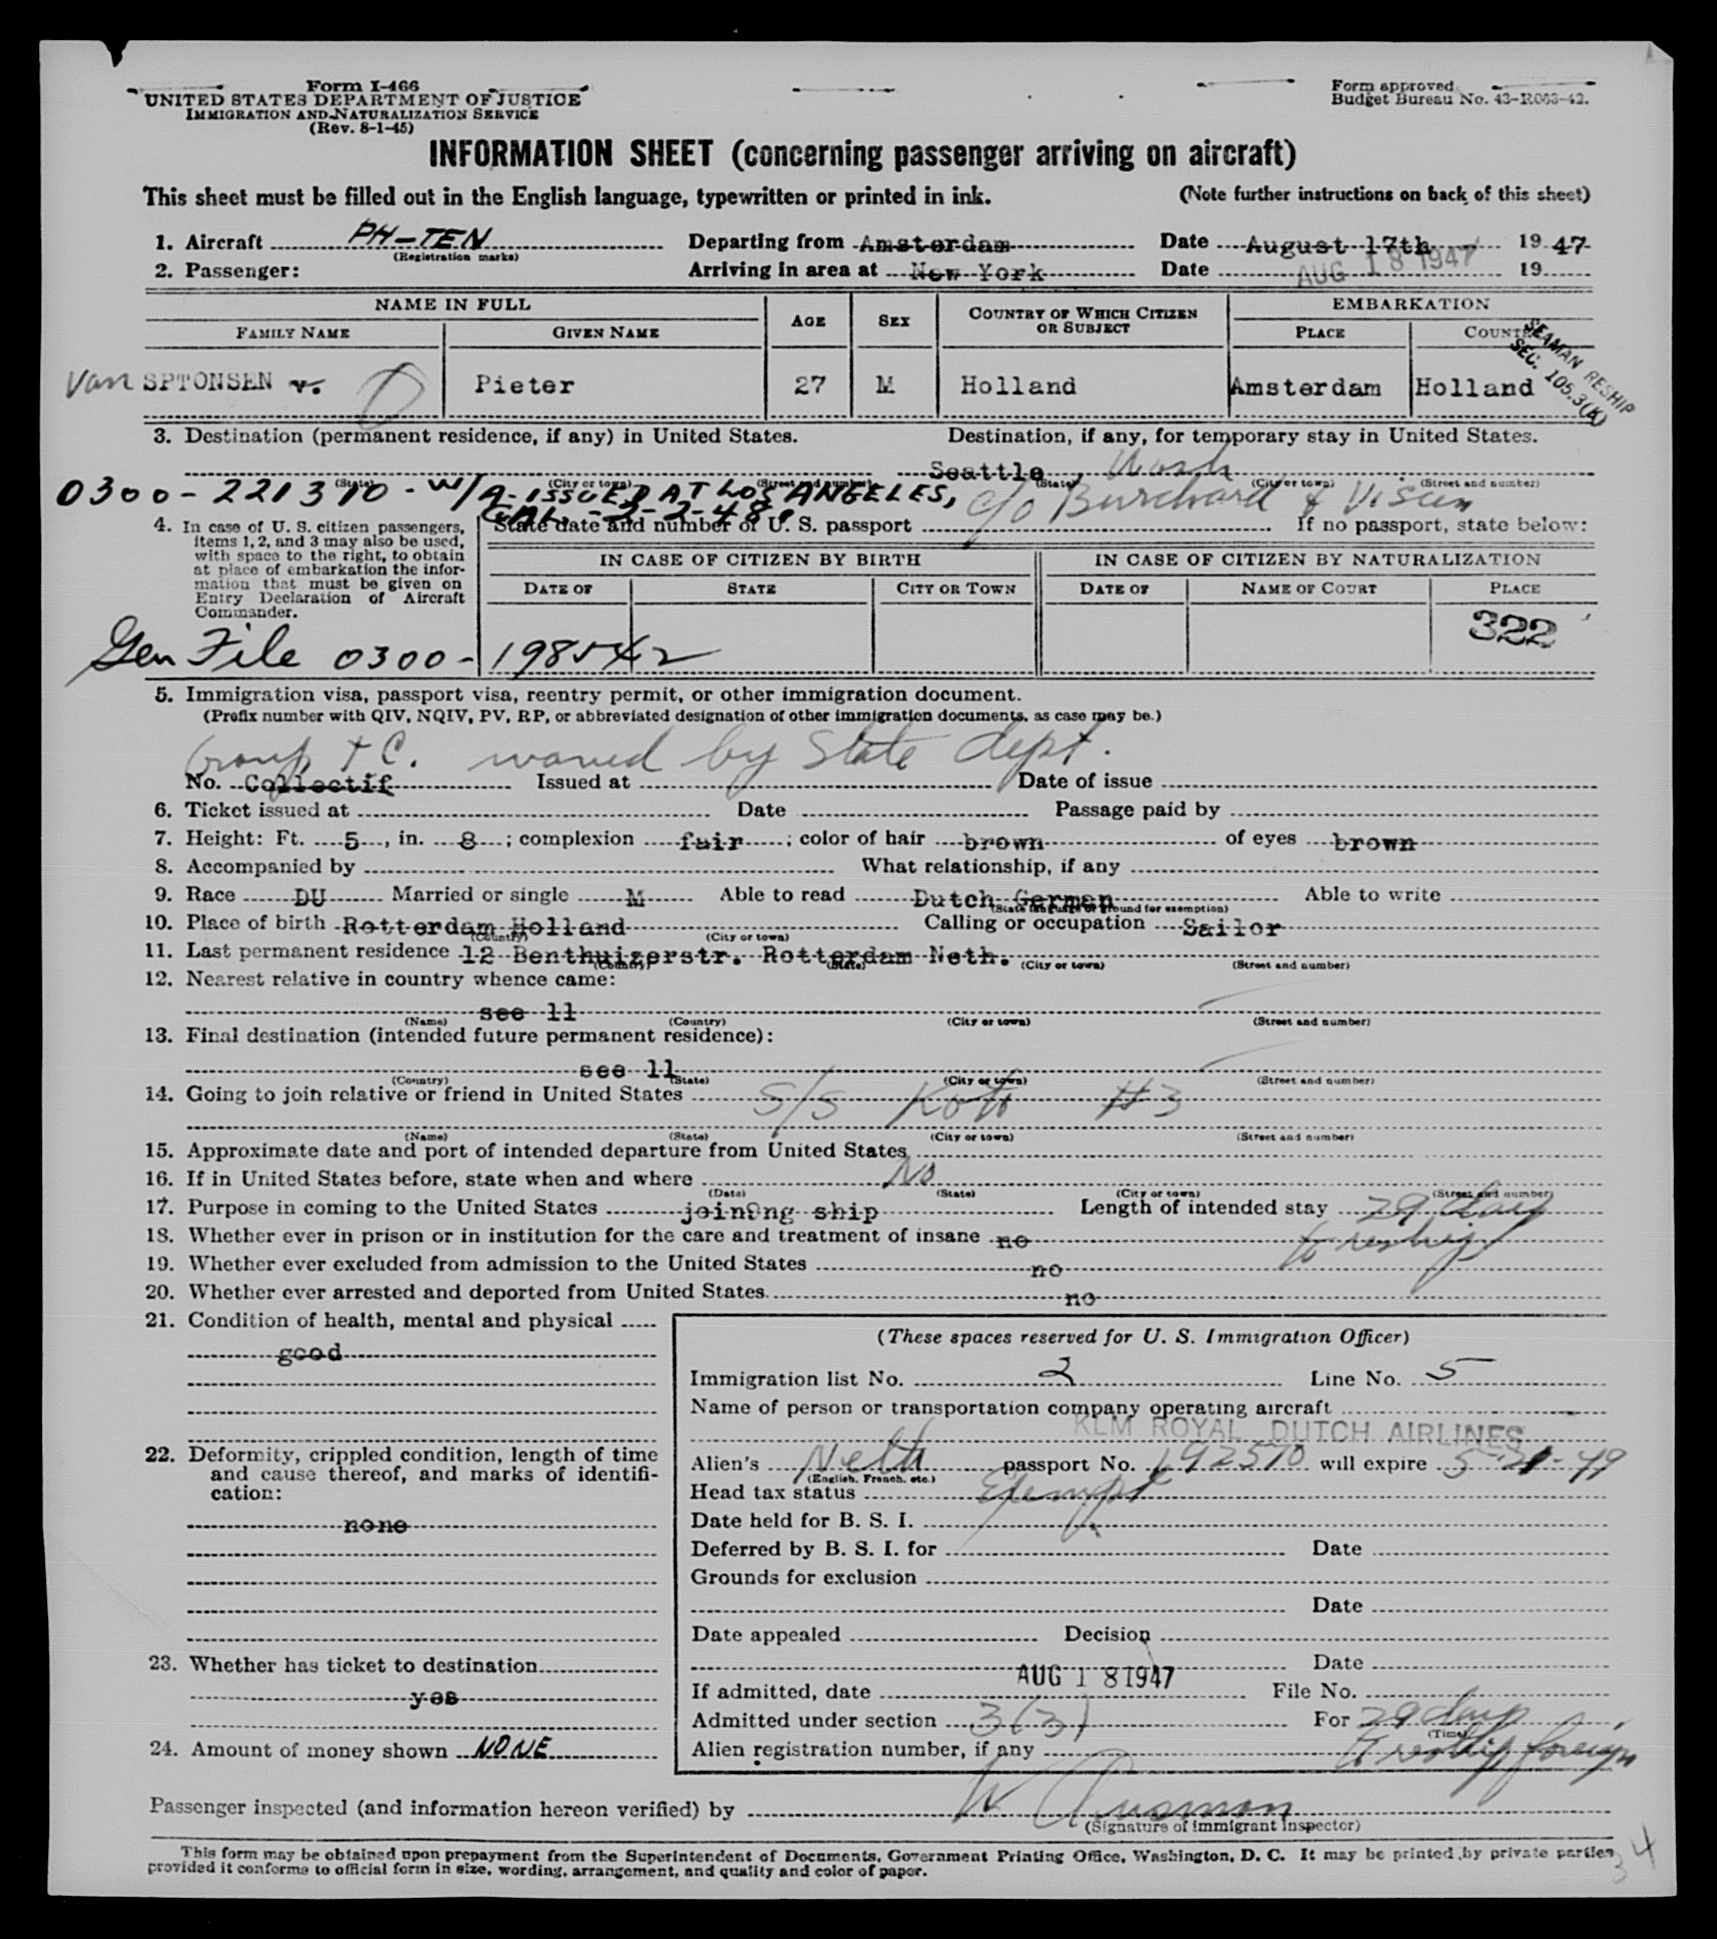 Form I-466
UNITED STATES DEPARTMENT OF JUSTICE
IMMIGRATION AND NATURALIZATION SERVICE
(Rev. 8-1-45)
Form approved.
Budget Bureau No. 43-R063-42.
INFORMATION SHEET (concerning passenger arriving on aircraft)
This sheet must be filled out in the English language, typewritten or printed in ink. (Note further instructions on back of this sheet)
1. Aircraft PH-TEN Departing from Amsterdam Date August 17th 19 47
(Registration marks)
2. Passenger: Arriving in area at New York Date AUG 18 1947 19
NAME IN FULL AGE SEX COUNTRY OF WHICH CITIZEN OR SUBJECT EMBARKATION
FAMILY NAME GIVEN NAME PLACE COUNTRY
SEAMAN RESHIP
SEC. 105.3(K)
van SPTONSEN v. Pieter 27 M Holland Amsterdam Holland
3. Destination (permanent residence, if any) in United States. Destination, if any, for temporary stay in United States.
Seattle, Wash
(State) (City or town) (Street and number) (State) (City or town) (Street and number)
0300-221310 - W/A-ISSUED AT LOS ANGELES, c/o Burchard &
CAL. -3-2-48.
4. In case of U. S. citizen passengers, items 1, 2, and 3 may also be used, with space to the right, to obtain at place of embarkation the information that must be given on Entry Declaration of Aircraft Commander.
State date and number of U. S. passport If no passport, state below:
IN CASE OF CITIZEN BY BIRTH IN CASE OF CITIZEN BY NATURALIZATION
DATE OF STATE CITY OR TOWN DATE OF NAME OF COURT PLACE
322
Gen File 0300-198542
5. Immigration visa, passport visa, reentry permit, or other immigration document.
(Prefix number with QIV, NQIV, PV, RP, or abbreviated designation of other immigration documents, as case may be.)
Group + C. waived by State dept.
No. Collectif Issued at Date of issue
6. Ticket issued at Date Passage paid by
7. Height: Ft. 5, in. 8; complexion fair; color of hair brown of eyes brown
8. Accompanied by What relationship, if any
9. Race DU Married or single M Able to read Dutch German Able to write
(State language or ground for exemption)
10. Place of birth Rotterdam Holland Calling or occupation Sailor
(Country) (City or town)
11. Last permanent residence 12 Benthuizerstr. Rotterdam Neth.
(Country) (State) (City or town) (Street and number)
12. Nearest relative in country whence came:
see 11
(Name) (Country) (City or town) (Street and number)
13. Final destination (intended future permanent residence):
see 11
(Country) (State) (City or town) (Street and number)
14. Going to join relative or friend in United States S/S #3
(Name) (State) (City or town) (Street and number)
15. Approximate date and port of intended departure from United States
16. If in United States before, state when and where No
(Date) (State) (City or town) (Street and number)
17. Purpose in coming to the United States join9ng ship Length of intended stay 29 days
to reship
18. Whether ever in prison or in institution for the care and treatment of insane no
19. Whether ever excluded from admission to the United States no
20. Whether ever arrested and deported from United States. no
21. Condition of health, mental and physical
good
22. Deformity, crippled condition, length of time and cause thereof, and marks of identification:
none
23. Whether has ticket to destination
yes
24. Amount of money shown NONE
(These spaces reserved for U. S. Immigration Officer)
Immigration list No. 2 Line No. 5
Name of person or transportation company operating aircraft
KLM ROYAL DUTCH AIRLINES
Alien's Neth passport No. 192570 will expire 5-21-49
(English, French, etc.)
Head tax status Exempt
Date held for B. S. I.
Deferred by B. S. I. for Date
Grounds for exclusion
Date
Date appealed Decision
Date
If admitted, date AUG 18 1947 File No.
Admitted under section 3(3) For 29 days
(Time)
Alien registration number, if any to reship foreign
Passenger inspected (and information hereon verified) by
(Signature of Immigrant Inspector)
This form may be obtained upon prepayment from the Superintendent of Documents, Government Printing Office, Washington, D. C. It may be printed by private parties
provided it conforms to official form in size, wording, arrangement, and quality and color of paper.
34